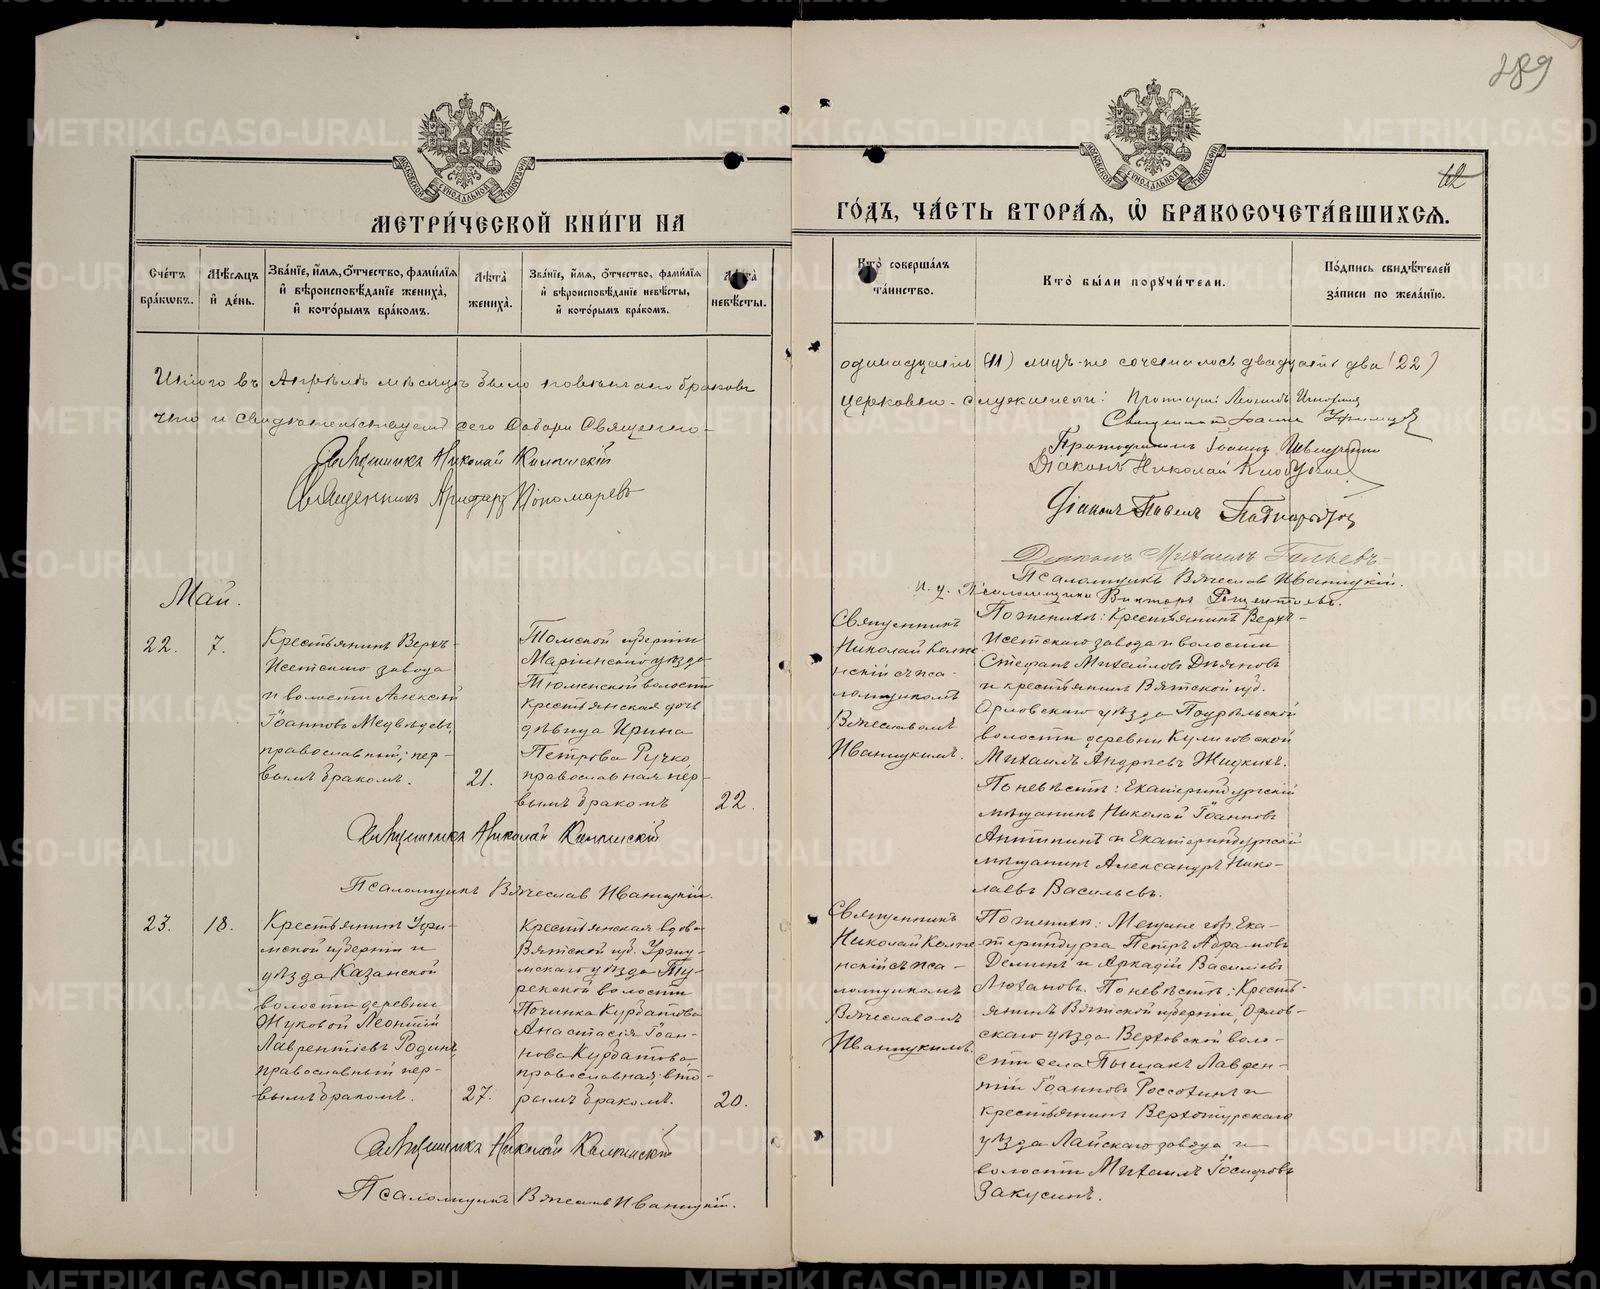 METRIKI.GASO-URAL.RU
289
МОСКОВСКОЙ СѴНОДАЛЬНОЙ ТИПОГРАФІИ
МЕТРИ́ЧЕСКОЙ КНИ́ГИ НА
Сче́тъ бра́кωвъ.
Мѣ́сяцъ и҆ де́нь.
Зва́нїе, и҆́мѧ, ѻ҆́тчество, фами́лїѧ и҆ вѣроисповѣ́данїе жениха̀, и҆ кото́рымъ бра́комъ.
Лѣ́та̀ жениха̀.
Зва́нїе, и҆́мѧ, ѻ҆́тчество, фами́лїѧ и҆ вѣроисповѣ́данїе невѣ́сты, и҆ кото́рымъ бра́комъ.
Лѣ́та̀ невѣ́сты.
Итого въ Апрѣлѣ мѣсяцѣ было повѣнчано браковъ
что и свидѣтельствуемъ сего Собора Священно-
Священникъ Николай
Священникъ Пономаревъ
Май.
22.
7.
Крестьянинъ Верхъ-
Исетскаго завода
и волости Алексѣй
Іоанновъ Медвѣдевъ,
православный, пер-
вымъ бракомъ.
21.
Томской губерніи
Маріинскаго уѣзда
Тюменской волости
крестьянская дочь
дѣвица Ирина
Петрова Ручко,
православная, пер-
вымъ бракомъ
22.
Николай
Псаломщикъ Вячеславъ Иваницкій.
23.
18.
Крестьянинъ Уфи-
мской губерніи и
уѣзда Казанской
волости деревни
Жуковой Леонтій
Лаврентіевъ Родинъ,
православный, пер-
вымъ бракомъ.
27.
Крестьянская вдова
Вятской губ. Уржу-
мскаго уѣзда Ту-
рекской волости
Починка Курбатова
Анастасія Іоан-
нова Курбатова
православная, вто-
рымъ бракомъ.
20.
Николай
Псаломщикъ Вячеславъ Иваницкій.
МОСКОВСКОЙ СѴНОДАЛЬНОЙ ТИПОГРАФІИ
12
ГО́ДЪ, ЧА́СТЬ ВТОРА́Ѧ, Ѡ҆ БРАКОСОЧЕТА́ВШИХСѦ.
Кто̀ соверша́лъ та́инство.
Кто̀ бы́ли порꙋчи́тели.
По́дпись свидѣ́телей за́писи по жела́нїю.
одинадцать (11) лицъ-же сочеталось двадцать два (22)
церковно-служители: Протоіерей Леонидъ Игноринъ
Священникъ Іоаннъ
Протодіаконъ Іоаннъ
Діаконъ Николай
Діаконъ Павелъ
Діаконъ Михаилъ
Псаломщикъ Вячеславъ Иваницкій.
И. д. Псаломщика Викторъ
Священникъ
Николай
нскій съ пса-
ломщикомъ
Вячеславомъ
Иваницкимъ.
По женихѣ: Крестьянинъ Верхъ-
Исетскаго завода и волости
Стефанъ Михайловъ Дьяновъ
и крестьянинъ Вятской губ.
Орловскаго уѣзда Подрѣльской
волости деревни Кулиговской
Михаилъ Андреевъ Жидкихъ.
По невѣстѣ: Екатеринбургскій
мѣщанинъ Николай Іоанновъ
Антипинъ и Екатеринбургскій
мѣщанинъ Александръ Нико-
лаевъ Васильевъ.
Священникъ
Николай
нскій съ пса-
ломщикомъ
Вячеславомъ
Иваницкимъ.
По женихѣ: Мещане гор. Ека-
теринбурга Петръ Абрамовъ
Деминъ и Аркадій Василіевъ
Лохановъ. По невѣстѣ: Кресть-
янинъ Вятской губерніи, Орлов-
скаго уѣзда Верховской воло-
сти села Пышакъ Лаврен-
тій Іоанновъ Россохинъ и
крестьянинъ Верхотурскаго
уѣзда Лайскаго завода и
волости Михаилъ Іосифовъ
Закусинъ.